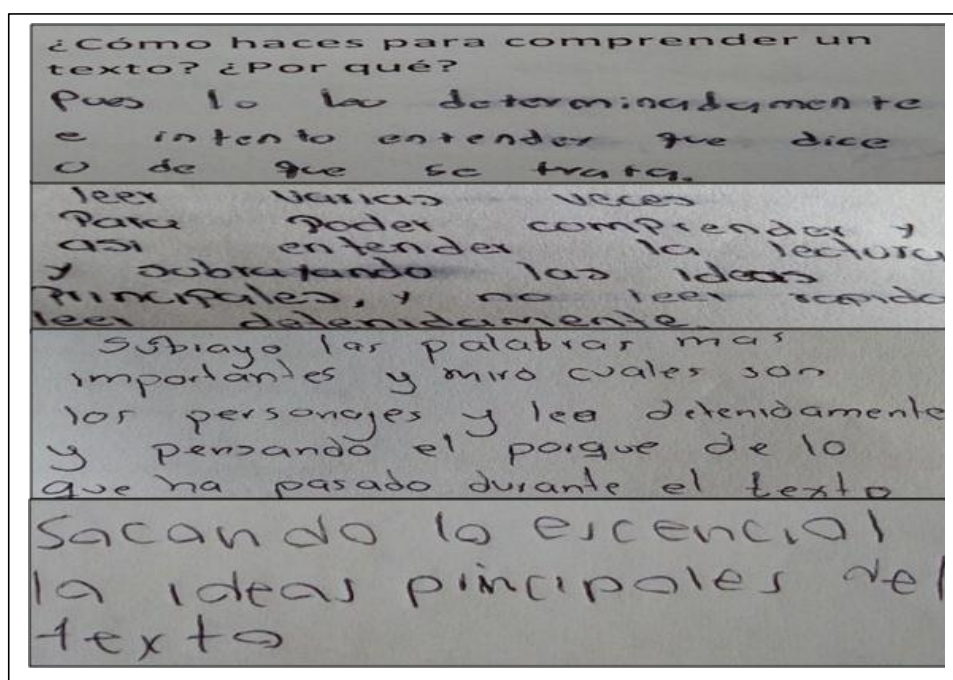 ¿Cómo haces para comprender un
texto? ¿Por qué?
Pues lo leo determinadamente
e intento entender que dice
o de que se trata.
leer varias veces
Para Poder comprender y
asi entender la lectura
y subrayando las ideas
Principales, y no leer rapido
leer detenidamente.
Subrayo las palabras mas
importantes y miro cuales son
los personajes y leo detenidamente
y pensando el porque de lo
que ha pasado durante el texto
Sacando lo escencial
la ideas pincipales del
texto